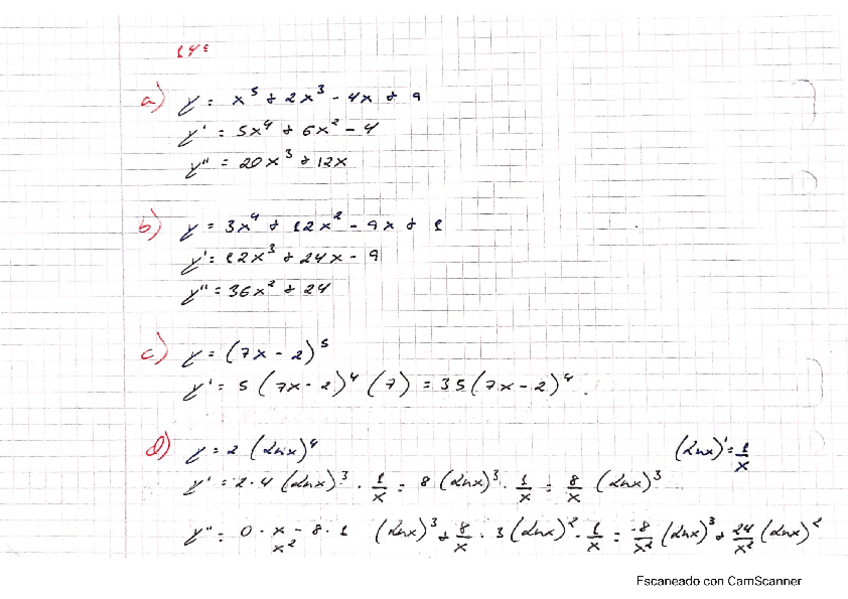 14:
a) y = x⁵ + 2x³ - 4x + 9
y' = 5x⁴ + 6x² - 4
y'' = 20x³ + 12x
b) y = 3x⁴ + 12x² - 9x + 1
y' = 12x³ + 24x - 9
y'' = 36x² + 24
c) y = (7x - 2)⁵
y' = 5 (7x - 2)⁴ (7) = 35 (7x - 2)⁴.
d) y = 2 (Lnx)⁴ (Lnx)' = 1/x
y' = 2 · 4 (Lnx)³ · 1/x = 8 (Lnx)³ · 1/x = 8/x (Lnx)³
y'' = (0 · x - 8 · 1)/x² (Lnx)³ + 8/x · 3 (Lnx)² · 1/x = -8/x² (Lnx)³ + 24/x² (Lnx)²
Escaneado con CamScanner